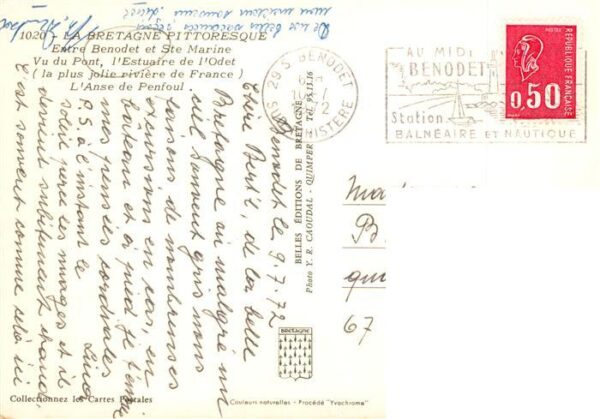 1020 - LA BRETAGNE PITTORESQUE
Entre Benodet et Ste Marine
Vu du Pont, l'Estuaire de l'Odet
(la plus jolie rivière de France)
L'Anse de Penfoul.
De nos belles vacances
29 S BENODET
SUD FINISTERE
AU MIDI
BENODET
Station
BALNÉAIRE ET NAUTIQUE
POSTES
REPUBLIQUE FRANÇAISE
0,50
Benodet le 9.7.72
de la belle
Bretagne où malgré un
ciel souvent gris nous
faisons de nombreuses
excursions en car, en
bateau et à pied. Je t'envoie
mes pensées cordiales
P.S. à l'instant le
soleil perce les nuages et il
devient subitement chaud,
c'est souvent comme cela ici
BELLES ÉDITIONS DE BRETAGNE
Photo Y. R. CAOUDAL - QUIMPER - Tél. 95.15.16
67
BRETAGNE
Collectionnez les Cartes Postales
Couleurs naturelles - Procédé "Yvochrome"